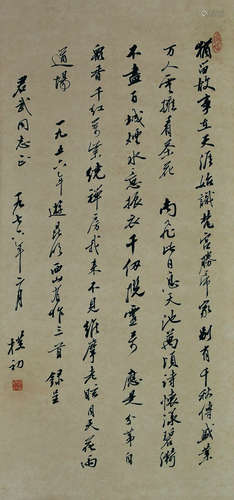 猶留故事在天涯始識梵宮勝帝家別有千秋傳盛業
万人雲擁看茶花 南飛此日息天池萬頃詩懷漾碧漪
不盡百城煙水意振衣千仞睨靈奇 應是分香自
衆香千紅萬紫繞禪房我來不見維摩老眩目天花雨
道場
一九五六年遊昆明西山有作三首錄呈
君武同志正 一九七六年二月 樸初